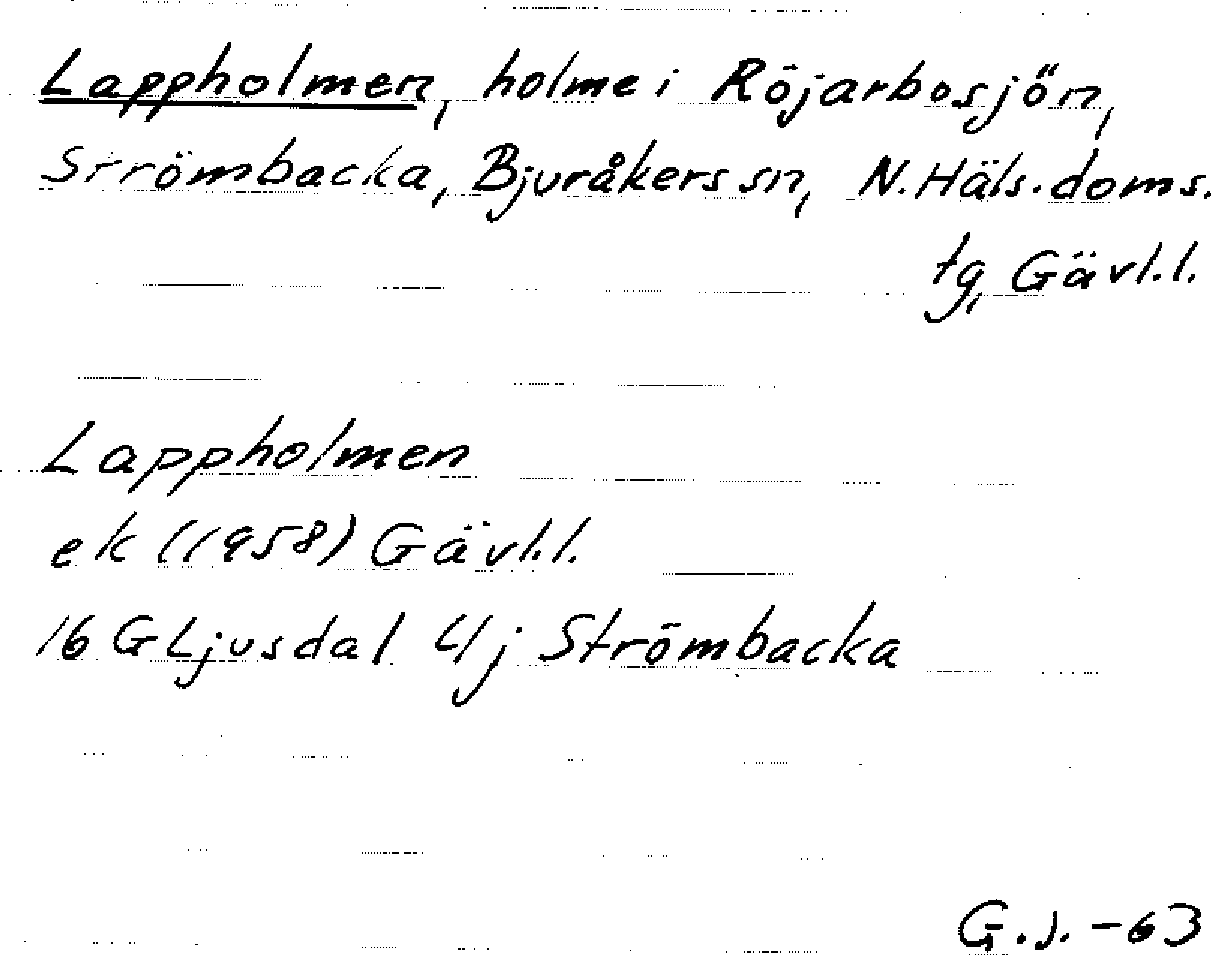 Lappholmen, holme i Röjarbosjön,
Strömbacka, Bjuråkers sn, N. Häls. doms.
tg, Gävl.l.
Lappholmen
ek (1958) Gävl.l.
16 G Ljusdal 4j Strömbacka
G.J. -63